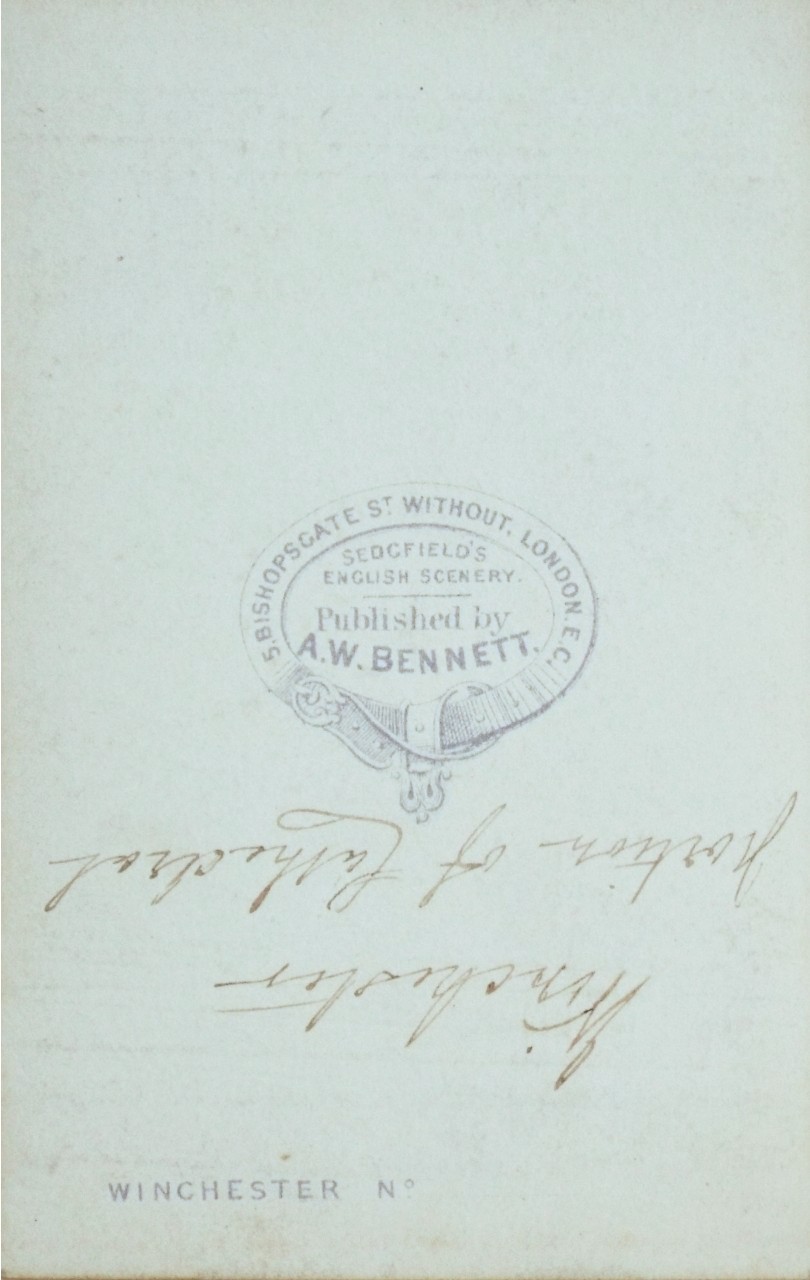 5. BISHOPSGATE ST WITHOUT. LONDON. E.C.
SEDGFIELD'S
ENGLISH SCENERY.
Published by
A.W. BENNETT.
Winchester
Portion of Cathedral
WINCHESTER No